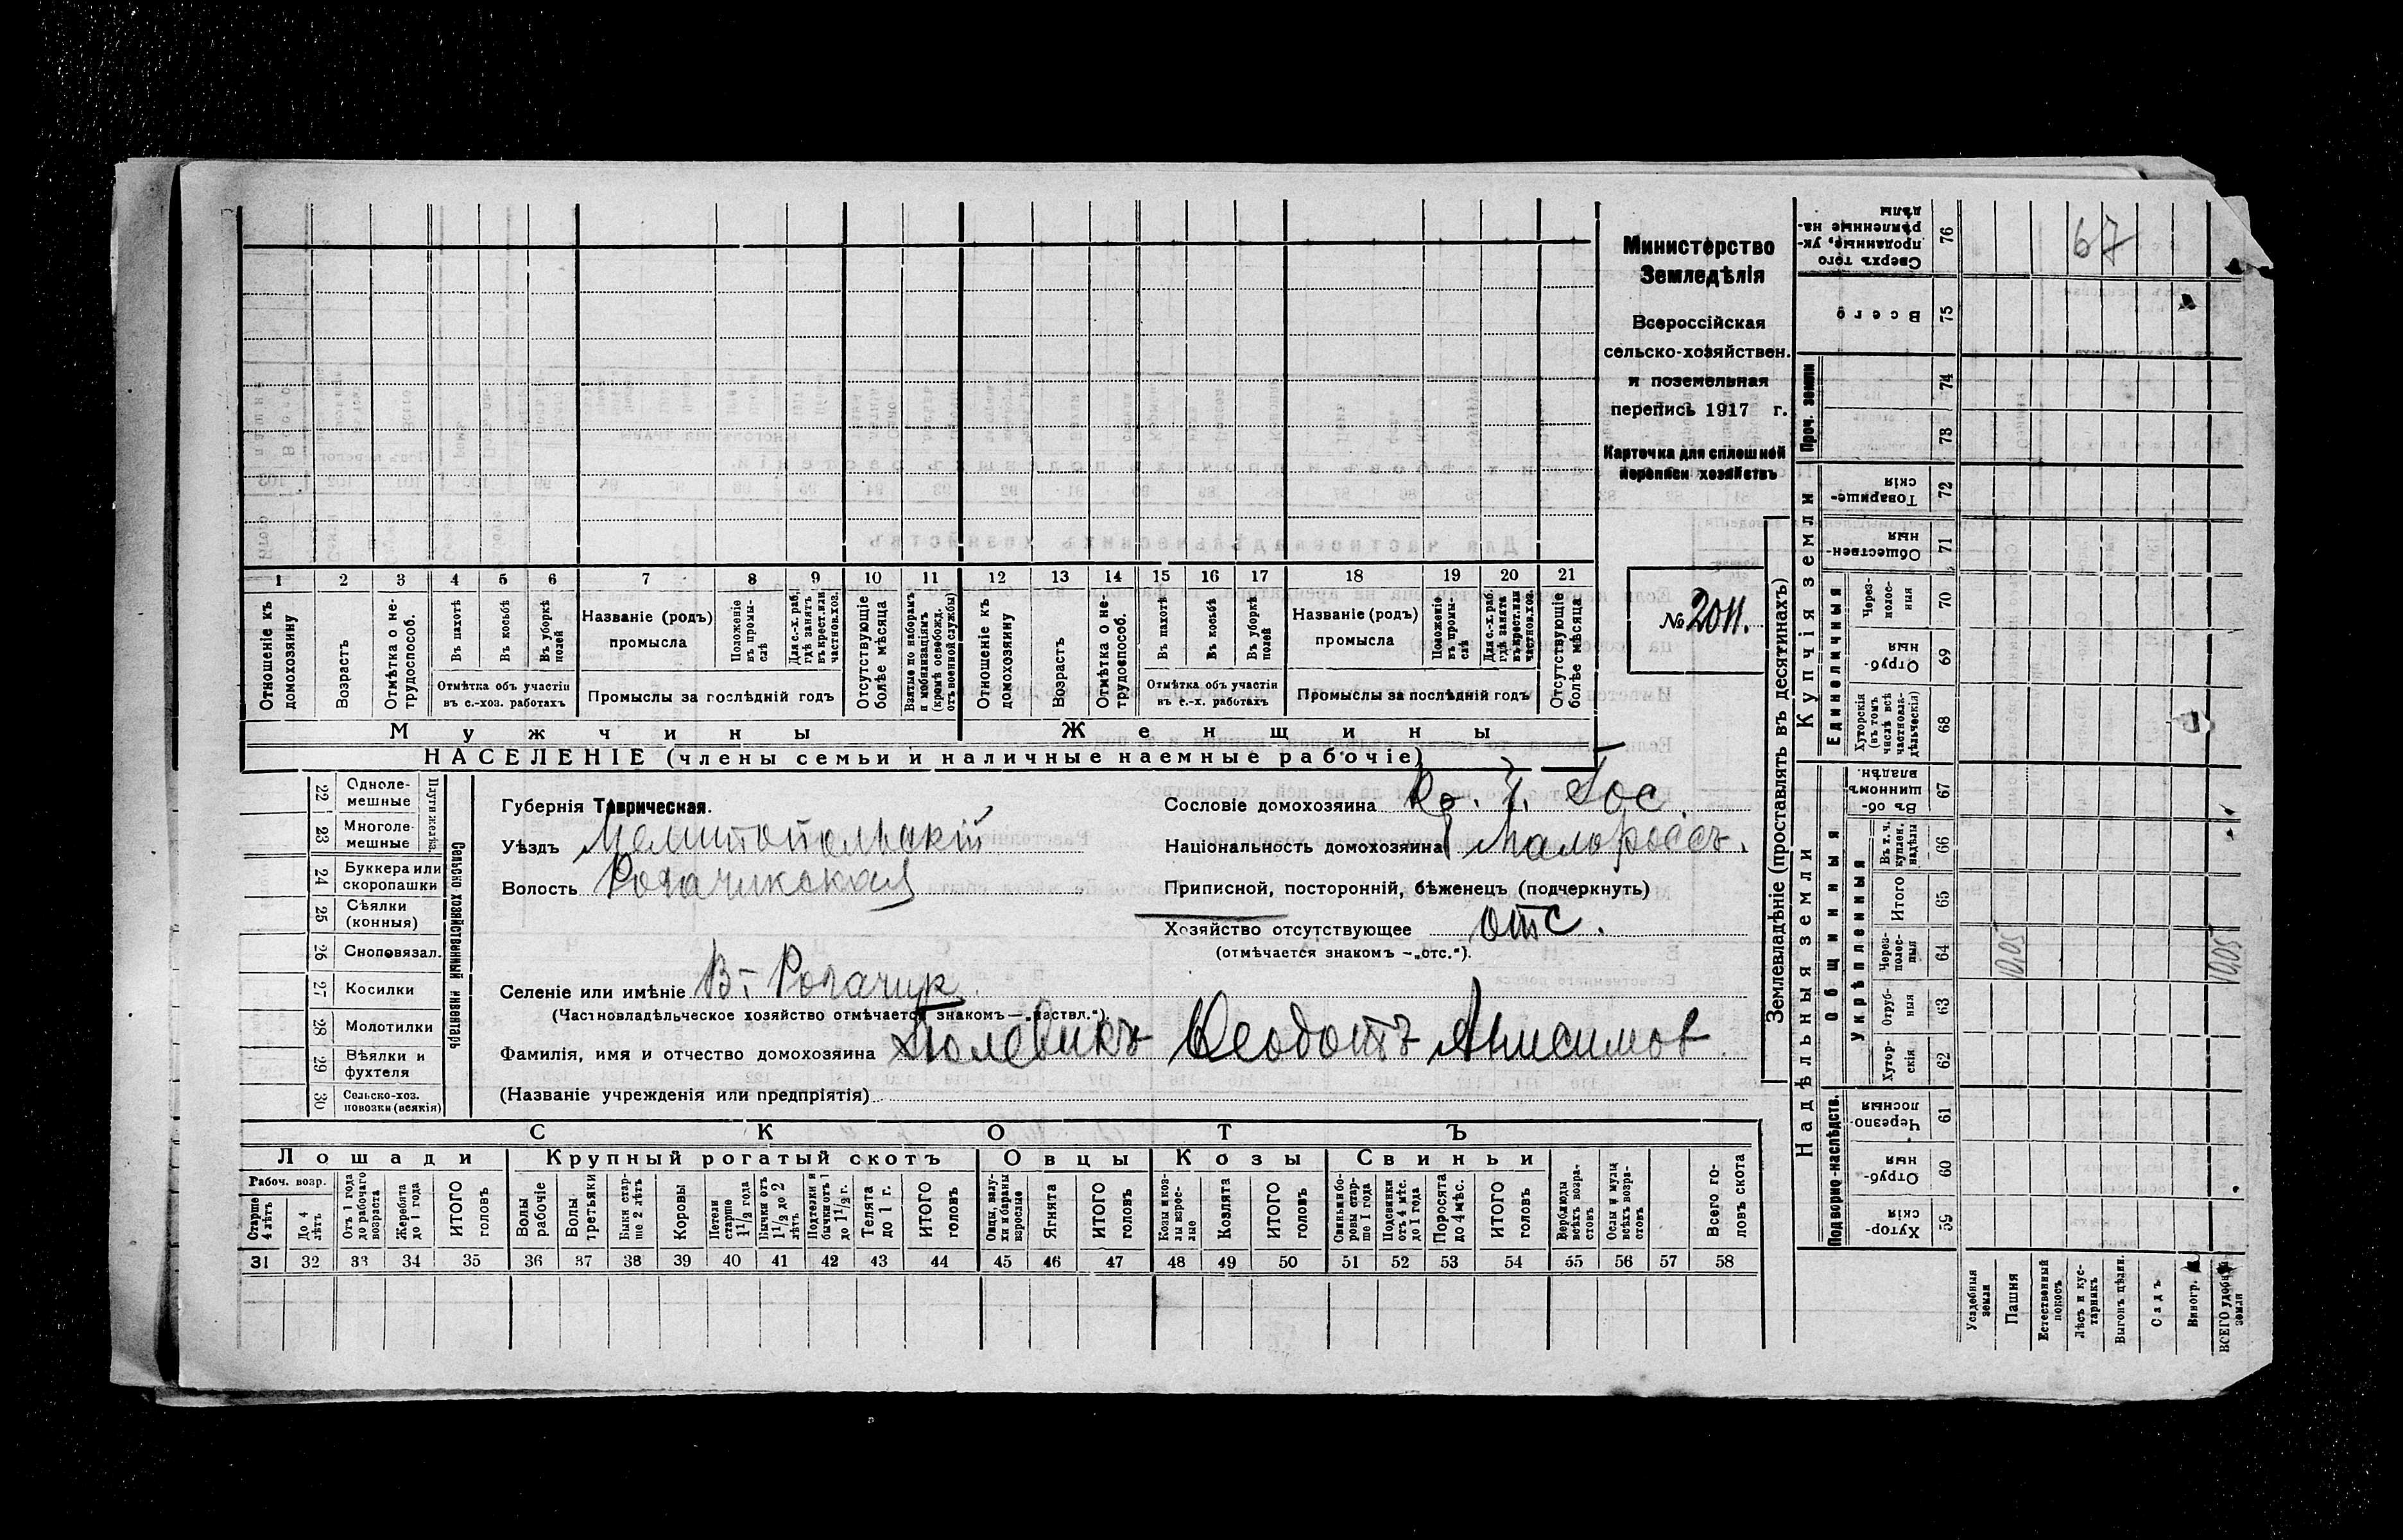 Министерство
Земледѣлія
Всероссійская
сельско-хозяйствен.
и поземельная
перепись 1917 г.
Карточка для сплошной
переписи хозяйствъ
№ 2011.
1 2 3 4 5 6 7 8 9 10 11 12 13 14 15 16 17 18 19 20 21
Отношеніе къ домохозяину
Возрастъ
Отмѣтка о не-трудоспособ.
Въ пахотѣ
Въ косьбѣ
Въ уборкѣ полей
Отмѣтка объ участіи
въ с.-хоз. работахъ
Названіе (родъ)
промысла
Положеніе въ промы-слѣ
Для с.-х. раб., гдѣ занятъ въ крест. или частнов. хоз.
Промыслы за послѣдній годъ
Отсутствующіе болѣе мѣсяца
Взятые по наборамъ и мобилизаціямъ (кромѣ освобожд. отъ военной службы)
Отношеніе къ домохозяину
Возрастъ
Отмѣтка о не-трудоспособ.
Въ пахотѣ
Въ косьбѣ
Въ уборкѣ полей
Отмѣтка объ участіи
въ с.-х. работахъ
Названіе (родъ)
промысла
Положеніе въ промы-слѣ
Для с.-х. раб. гдѣ занята въ крест. или частнов. хоз.
Промыслы за послѣдній годъ
Отсутствующіе болѣе мѣсяца
Мужчины Женщины
НАСЕЛЕНІЕ (члены семьи и наличные наемные рабочіе)
22 Одноле-мешные
23 Многоле-мешные
Плуги желѣз.
24 Буккера или скоропашки
25 Сѣялки (конныя)
26 Сноповязал.
27 Косилки
28 Молотилки
29 Вѣялки и фухтеля
30 Сельско-хоз. повозки (всякія)
Сельско хозяйственный инвентарь
Губернія Таврическая.
Уѣздъ Мелитопольскій
Волость Рогачикская
Сословіе домохозяина Гос
Національность домохозяина Малороссъ.
Приписной, посторонній, бѣженецъ (подчеркнуть)
Хозяйство отсутствующее отс.
(отмѣчается знакомъ —„отс.“).
Селеніе или имѣніе В.- Рогачик
(Частновладѣльческое хозяйство отмѣчается знакомъ—„частвл.“).
Фамилія, имя и отчество домохозяина Полевикъ Феодотъ Анисимов.
(Названіе учрежденія или предпріятія)
СКОТЪ
Лошади Крупный рогатый скотъ Овцы Козы Свиньи
Рабоч. возр.
Старше 4 лѣтъ
До 4 лѣтъ
Отъ 1 года до рабочаго возраста
Жеребята до 1 года
ИТОГО головъ
Волы рабочіе
Волы третьяки
Быки стар-ше 2 лѣтъ
Коровы
Нетели старше 1 1/2 года
Бычки отъ 1 1/2 до 2 лѣтъ
Подтелки и бычки отъ 1 до 1 1/2 г.
Телята до 1 г.
ИТОГО головъ
Овцы, валу-хи и бараны взрослые
Ягнята
ИТОГО головъ
Козы и коз-лы взрос-лые
Козлята
ИТОГО головъ
Свиньи и бо-ровы стар-ше 1 года
Подсвинки отъ 4 мѣс. до 1 года
Поросята до 4 мѣс.
ИТОГО головъ
Верблюды всѣхъ возра-стовъ
Ослы и мулы всѣхъ возра-стовъ
Всего го-ловъ скота
31 32 33 34 35 36 37 38 39 40 41 42 43 44 45 46 47 48 49 50 51 52 53 54 55 56 57 58
Землевладѣніе (проставлять въ десятинахъ)
Надѣльныя земли
Купчія земли
Подворно-наслѣдств.
Общинныя
Укрѣпленныя
Единоличныя
Проч. земли
Сверхъ того проданные, ук-рѣпленные на-дѣлы 76
67
Всего 75
74
73
Товарище-скія 72
Обществен-ныя 71
Через-полос-ныя 70
Отруб-ныя 69
Хуторскія (въ томъ числѣ всѣ частновла-дѣльческія) 68
Въ об-щинномъ владѣн. 67
Въ т. ч. куплен. надѣлы 66
Итого 65
Через-полос-ныя 64
10,05
10,05
Отруб-ныя 63
Хутор-скія 62
Черезпо-лосныя 61
Отруб-ныя 60
Хутор-скія 59
Усадебныя земли
Пашня
Естественный покосъ
Лѣсъ и кус-тарникъ
Выгонъ цѣлин.
Садъ
Виногр.
ВСЕГО удобной земли